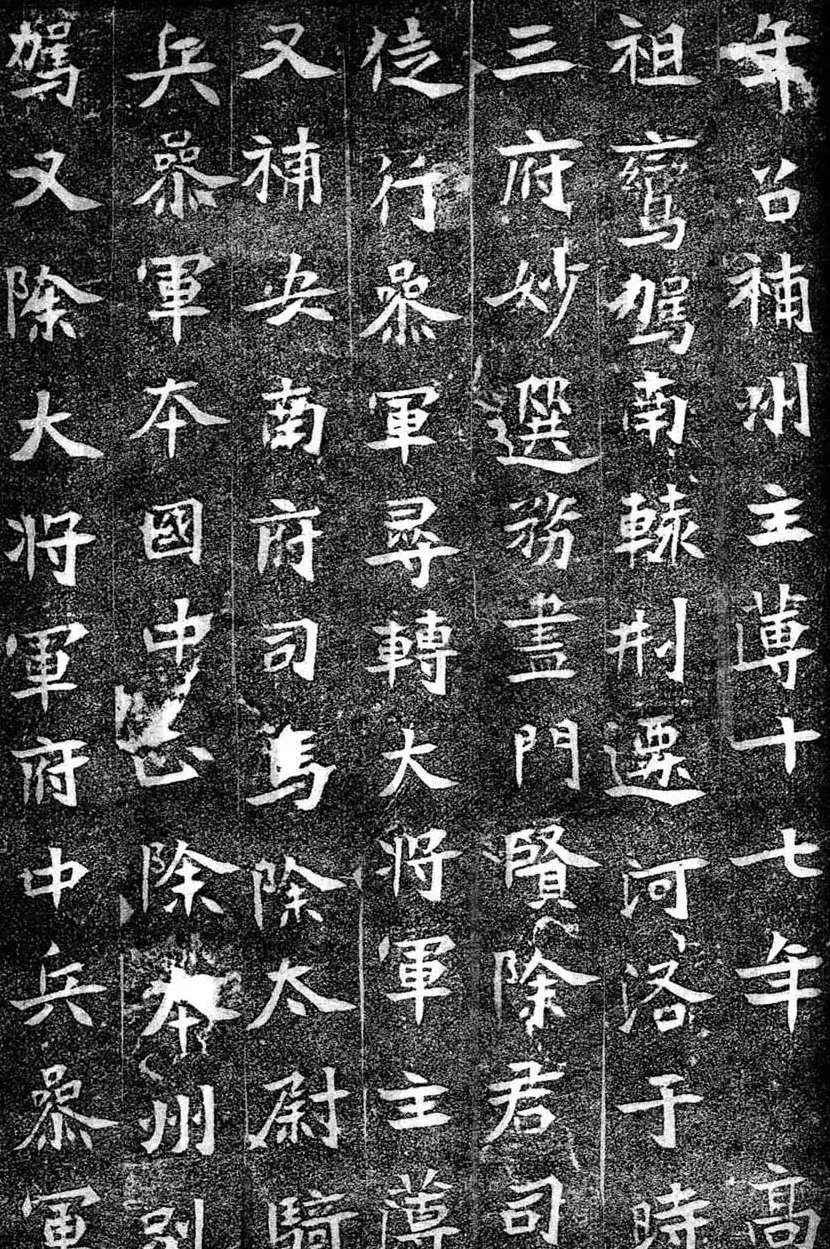 年召補州主薄十七年 高
祖鸞駕南轅刱遷河洛于時
三府妙選務盡門賢除君司
徒行叅軍尋轉大將軍主薄
又補安南府司馬除太尉騎
兵叅軍本國中正除本州別
駕又除大將軍府中兵叅軍